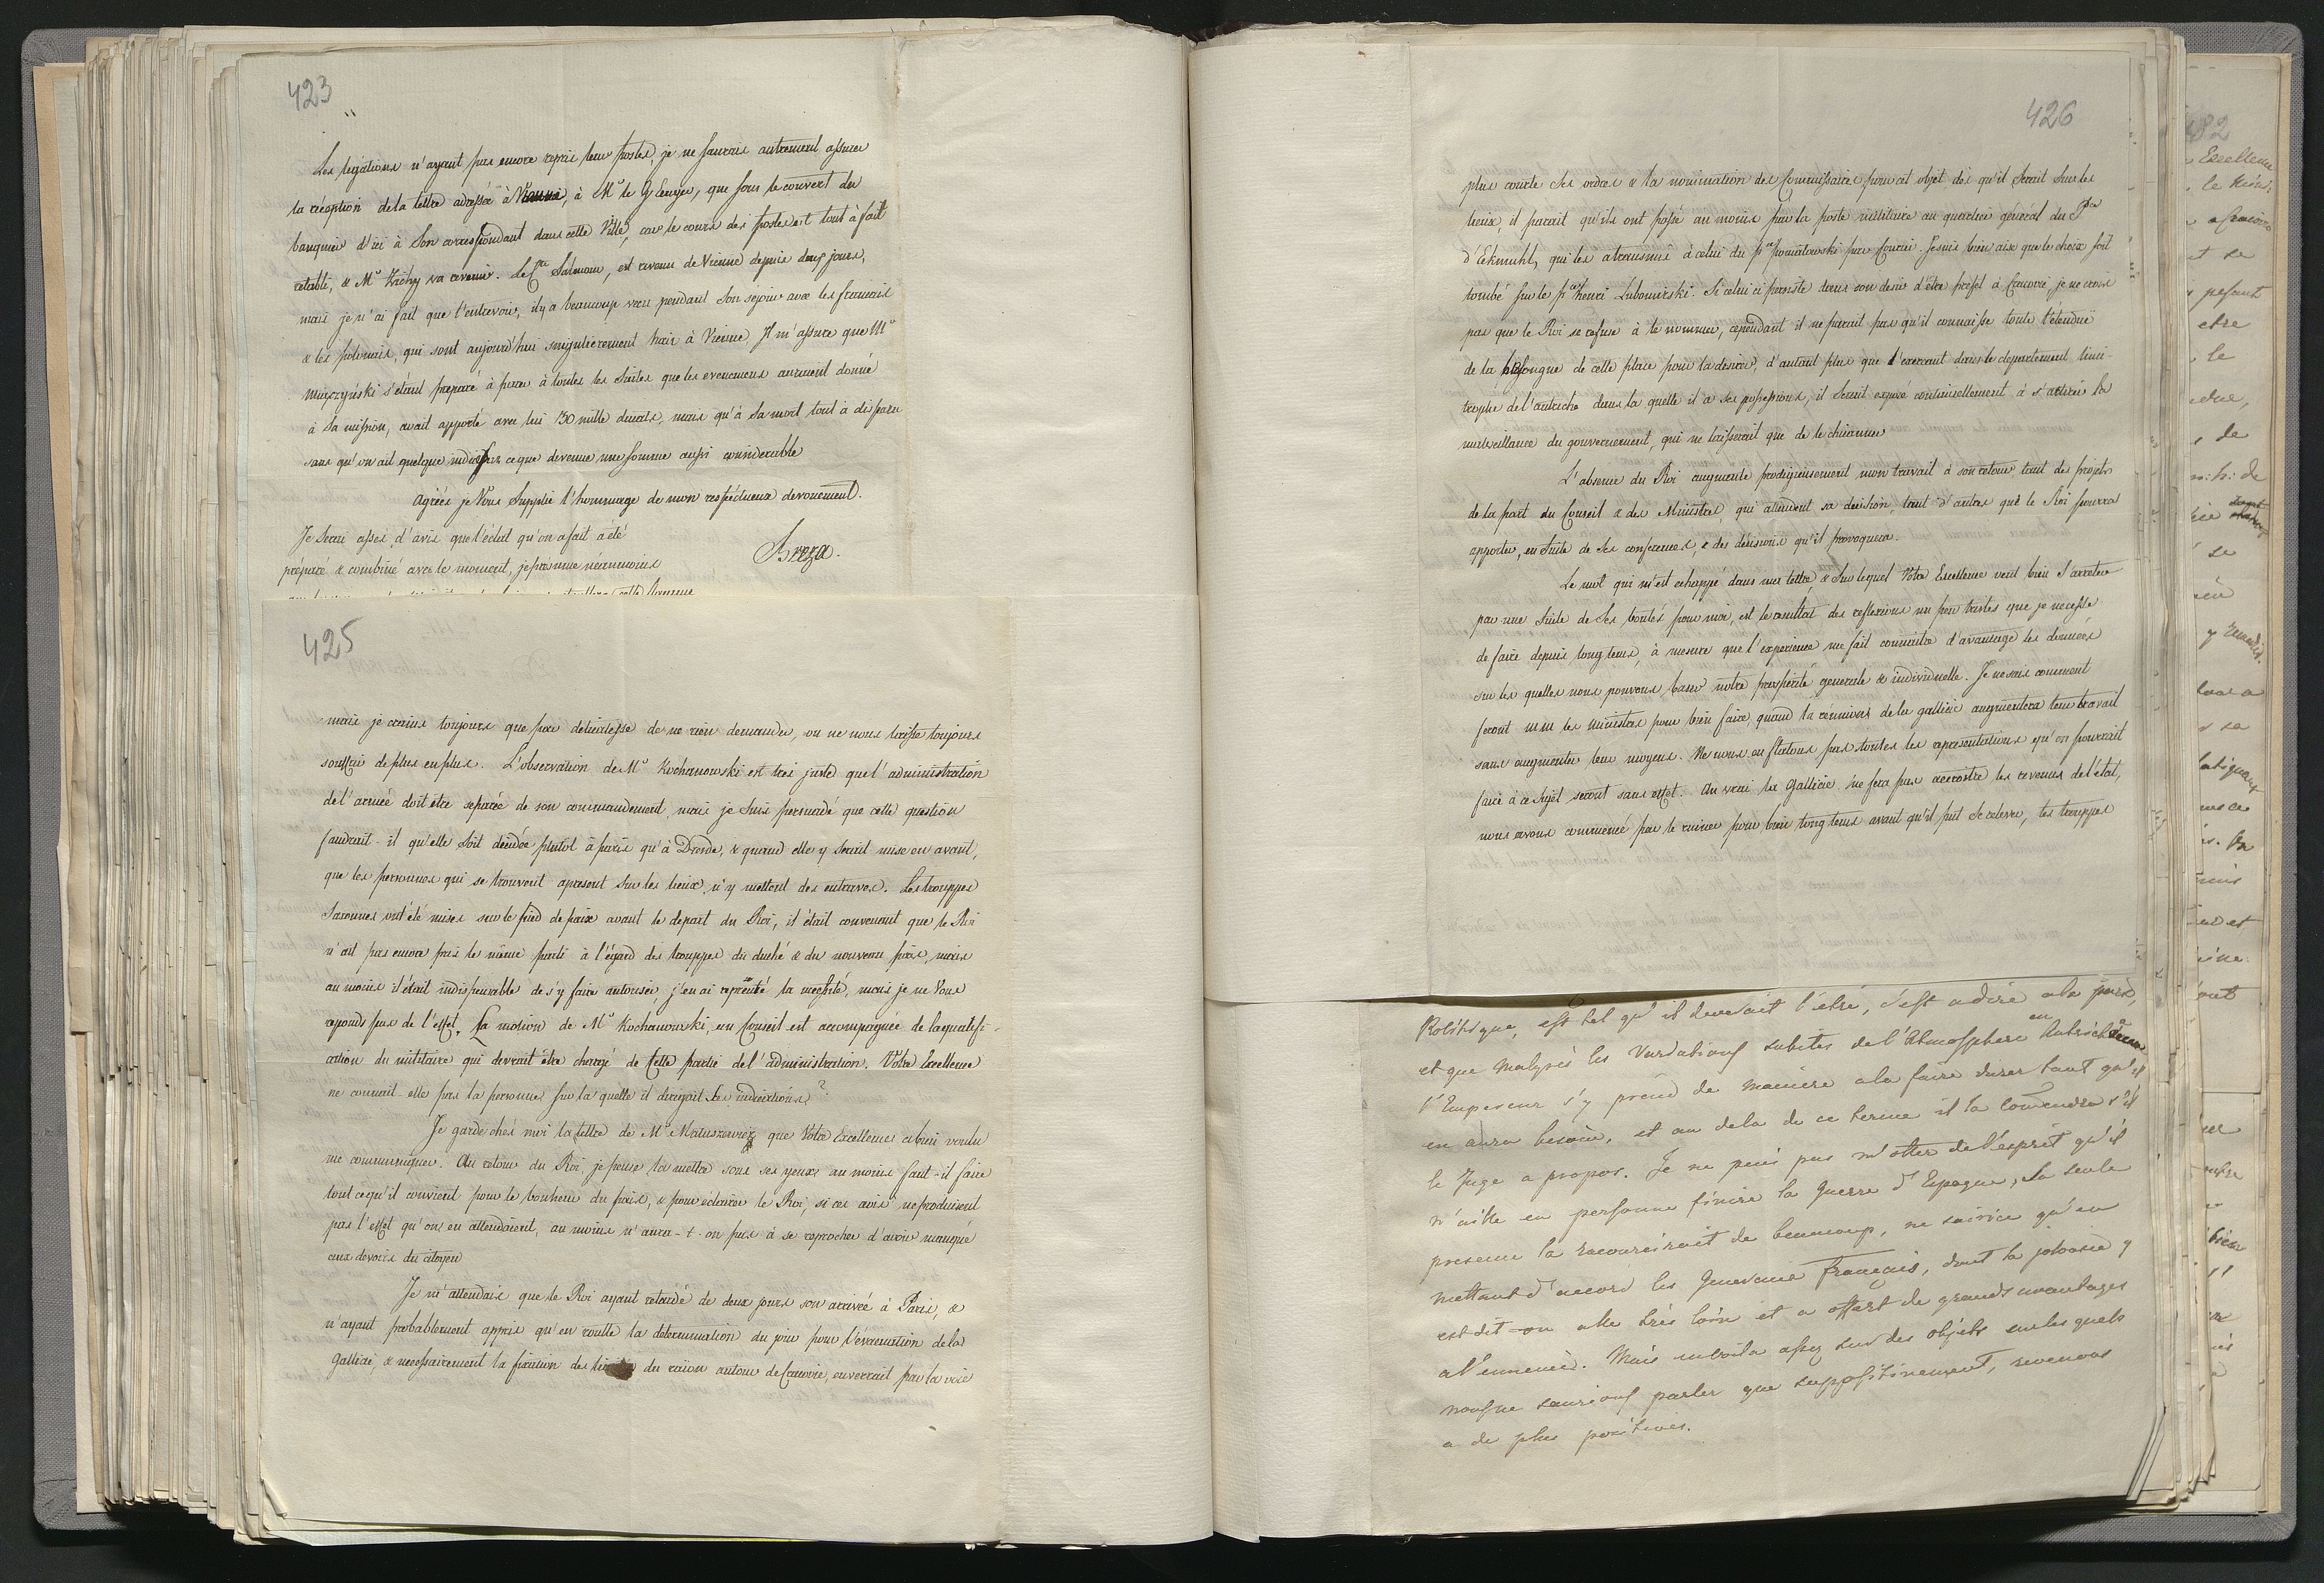 423
Les legations n'ayant pas encore repris leur postes, je ne saurais autrement assurer
la réception de la lettre adressée à Vienne, à Mr le G, que sous le couvert du
banquier d'ici à Son correspondant dans cette Ville, car le cours des postes est tout à fait
retabli, & Mr Zichy va revenir. Le Cte Salmour, est revenu de Vienne depuis deux jours,
mais je n'ai fait que l'entrevoir, il y a beaucoup vecu pendant Son séjour avec les français
& les polonais, qui sont aujourd'hui singulierement hais à Vienne. Il m'assure que Mr
Mięczyński s'étant preparé à parer à toutes les Suites que les evenemens auraient donné
à Sa mission, avait apporté avec lui 130 mille ducats, mais qu'à Sa mort tout a disparu
sans qu'on ait quelque indice sur ce que devenue une somme aussi considerable
Agréés je Vous Supplie l'hommage de mon respectueux devouement.
Je Serai assés d'avis que l'éclat qu'on a fait a été
préparé & combiné avec le moment, je présume néanmoins
Breza.
425
mais je crains toujours que par delicatesse de ne rien demander, on ne nous laisse toujours
souffrir de plus en plus. L'observation de Mr Kochanowski est trés juste que l'administration
de l'armée doit être separée de son commandement, mais je Suis persuadé que cette question
faudrait-il qu'elle Soit décidée plutot à paris qu'à Dresde, & quand elle y Serait mise en avant,
que les personnes qui se trouvent apresent Sur les lieux, n'y mettent des entraves. Les trouppes
Saxonnes ont été mises sur le pied de paix avant le depart du Roi, il était convenant que le Roi
n'ait pas encore pris le même parti à l'égard des trouppes du duché & du nouveau païs, mais
au moins il était indispensable de s'y faire autoriser, j'en ai représenté la necessité, mais je ne Vous
reponds pas de l'effet. La motion de Mr Kochanowski, au Conseil est accompagnée de la qualifi-
cation du militaire qui devrait être chargé de Cette partie de l'administration. Votre Excellence
ne connait-elle pas la personne Sur la quelle il dirigeait Ses indications?
Je garde chés moi la lettre de Mr Matuszewicz que Votre Excellence a bien voulu
me communiquer. Au retour du Roi, je pense la mettre sous ses yeux, au moins faut-il faire
tout ce qu'il convient pour le bonheur du païs, & pour éclairer le Roi, si ces avis ne produisent
pas l'effet qu'on en attendaient, au moins n'aura-t-on pas à se reprocher d'avoir manqué
aux devoirs du citoyen
Je m'attendais que le Roi ayant retardé de deux jours son arrivée à Paris, &
n'ayant probablement appris qu'en routte la determination du jour pour l'évacuation de la
Gallicie, & necessairement la fixation des du raion autour de Cracovie, enverrait par la voie
426
plus courte Ses ordres & la nomination des Commissaires pour cet objet dès qu'il Serait Sur les
lieux, il parait qu'ils ont passé au moins par la poste militaire au quartier général du Pce
d'Eckmuhl, qui les a transmis à celui du pce poniatowski par Courier. Je suis bien aise que le choix soit
tombé sur le pce henri Lubomirski. Si celui ci persiste dans son desir d'être prefet à Cracovie, je ne crois
pas que le Roi se refuse à le nommer, cependant il ne parait pas qu'il connaisse toute l'étendue
de la besongne de cette place pour la desirer, d'autant plus que l'exercant dans le departement limi-
trophe de l'autriche dans la quelle il a ses possessions, il Serait exposé continuellement à s'attirer la
malveillance du gouvernement, qui ne laisserait que de le chicanner
L'absence du Roi augmente prodigieusement mon travail à son retour, tant des projets
de la part du Conseil & des Ministres, qui attendent sa decision, tant d'autres que le Roi pourra
apporter, en Suite de Ses conferences, & des décisions qu'il provoquera.
Le mot qui m'est echappé dans ma lettre, & Sur lequel Votre Excellence veut bien S'arreter
par une Suite de Ses bontés pour moi, est le resultat des reflexions un peu tristes que je ne cesse
de faire depuis longtems, à mesure que l'experience me fait connaitre d'avantage les données
sur les quelles nous pouvons baser notre prosperité generale & individuelle. Je ne sais comment
feront Mrs les ministres pour bien faire, quand la réunion de la gallicie augmentera leur travail
sans augmenter leur moyens. Ne nous en flattons pas, toutes les representations qu'on pourrait
faire à ce Sujet seront sans effet. Au vrai la Gallicie ne fera pas accroitre les revenus de l'état,
nous avons commencé par le ruiner pour bien longtems avant qu'il put Se relever, les trouppes
Politique, est tel qu'il devroit l'etre, c'est a dire a la paix,
et que malgrès les Variations subites de l'Atmosphere en Autriche
l'Empereur s'y prend de maniere a la faire durer tant qu'il
en aura besoin, et au dela de ce terme il la s'il
le juge a propos. Je ne puis pas m'otter de l'esprit qu'il
n'aille en personne finire la guerre d'Espagne, Sa seule
presence la racourciroit de beaucoup, ne seroice qu'en
mettant d'accord les Generaux français, dont la jalousie y
est dit-on alle très loin et a offert de grands avantages
a l'ennemie. Mais en voila assez sur des objets sur les quels
nous ne saurions parler que suppositivement, revenons
a de plus positives.